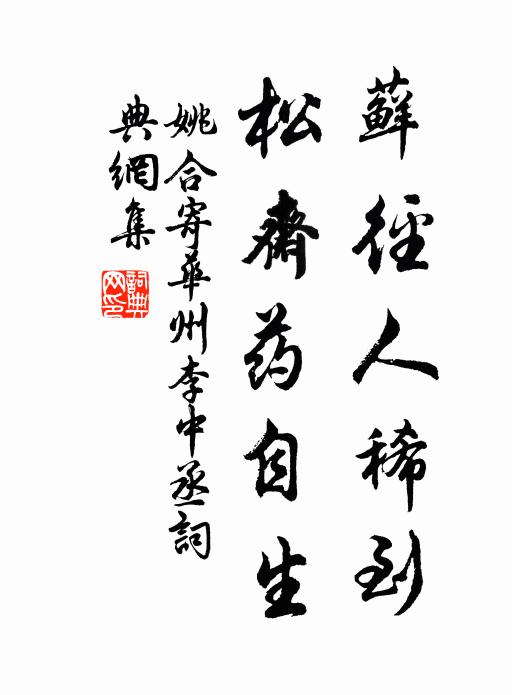 蘚徑人稀到
松齋药自生
姚合寄華州李中丞詞
典網集
詞典網印